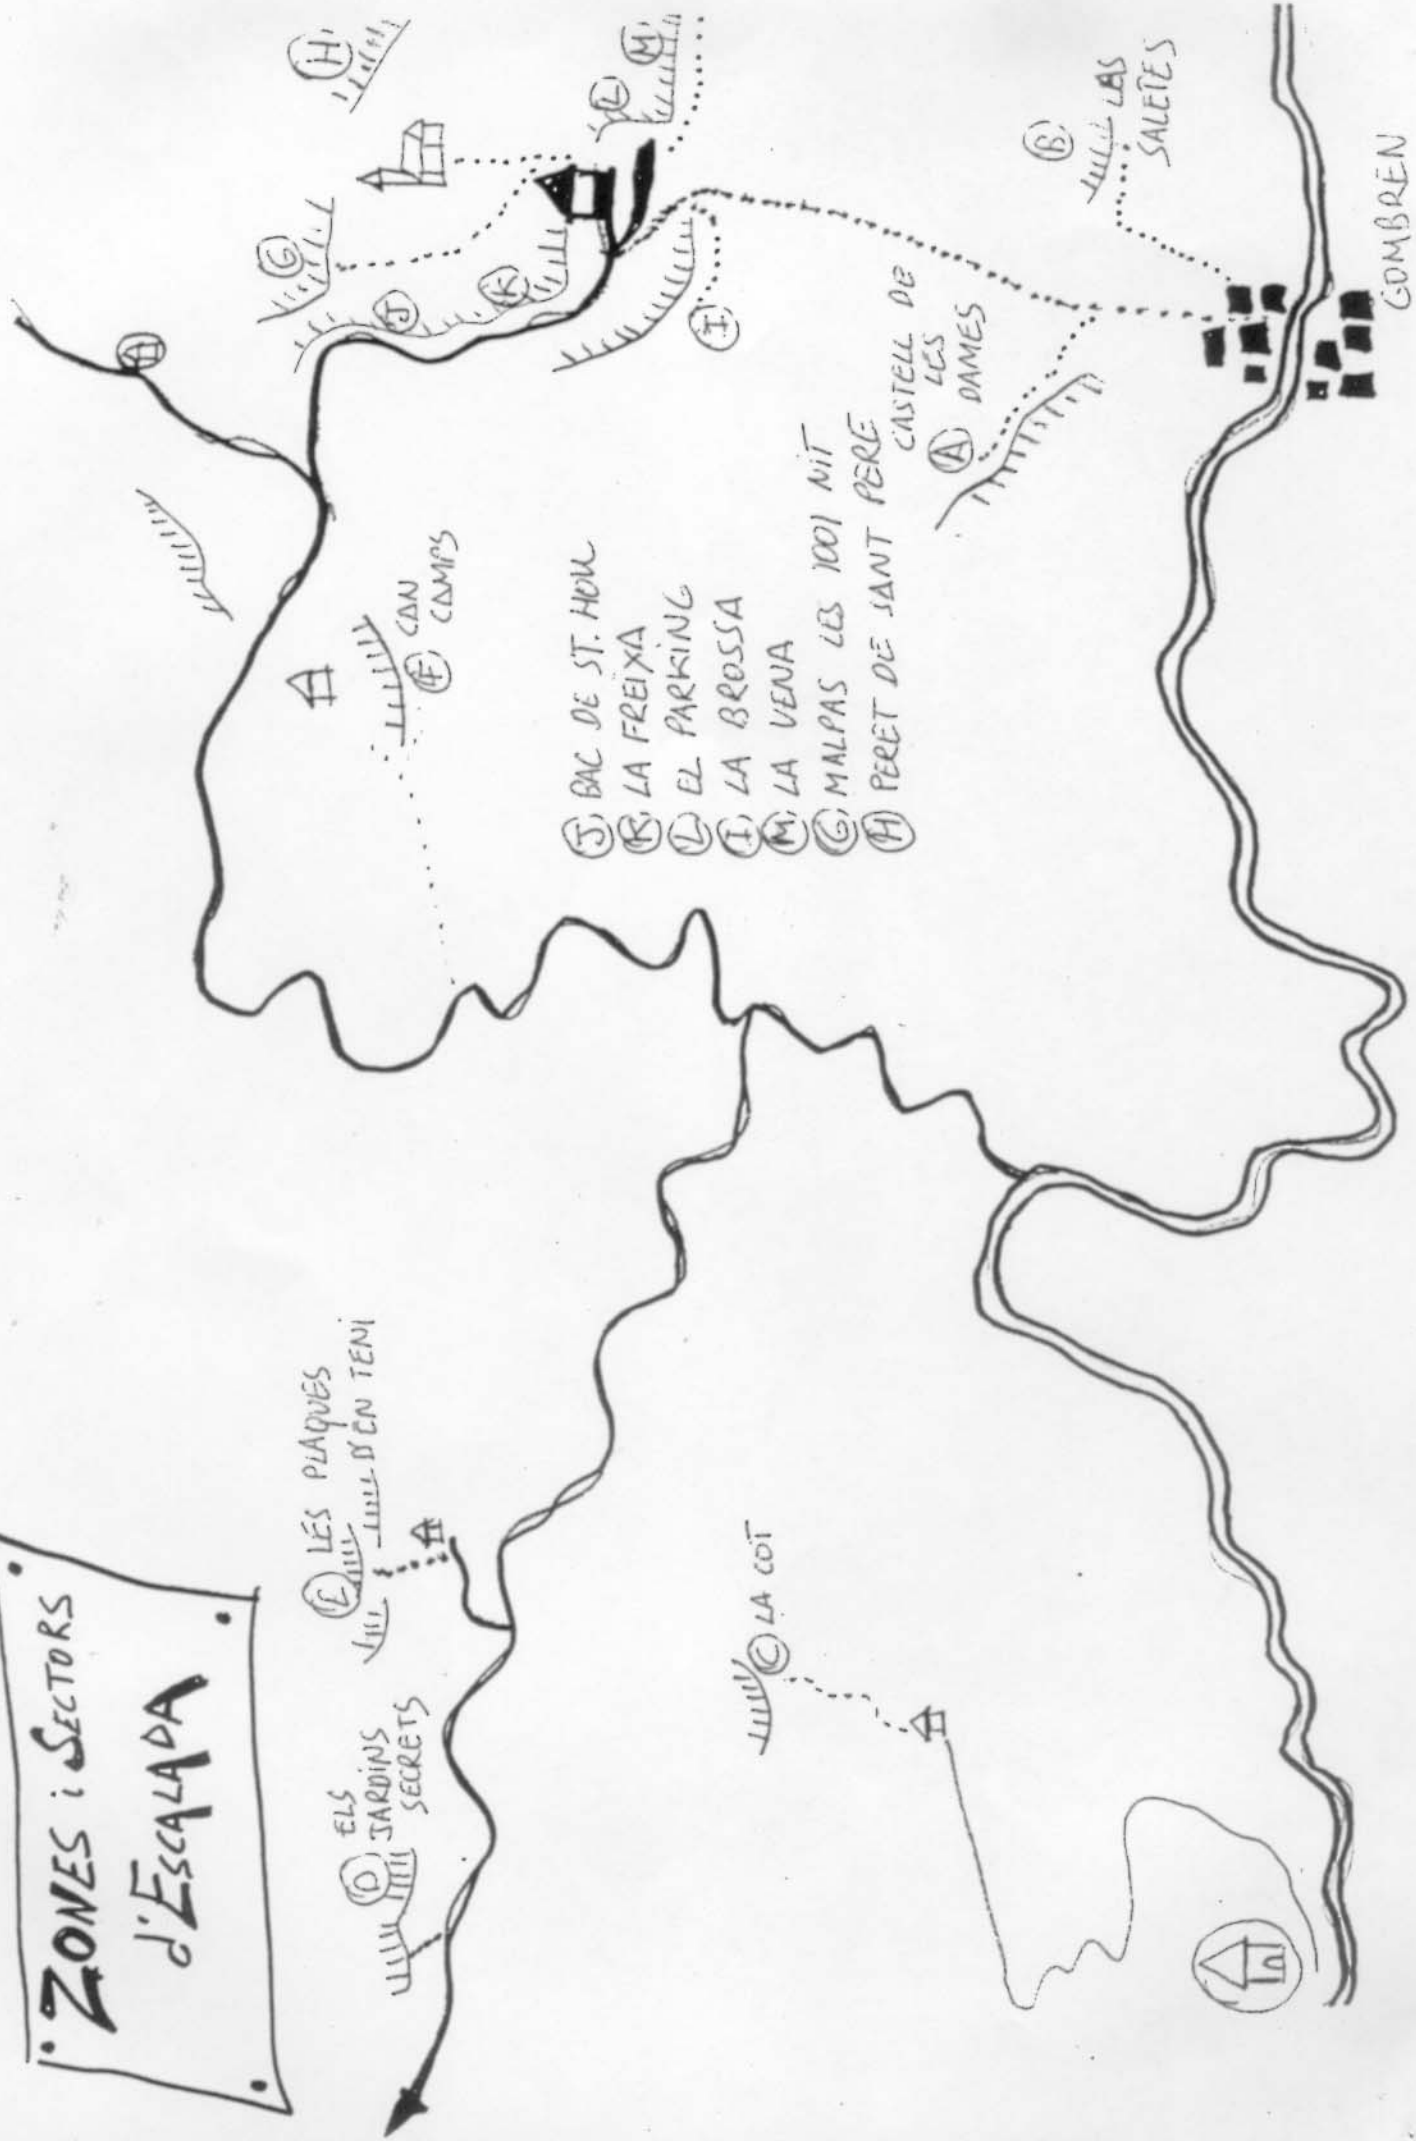 ZONES i SECTORS
d'ESCALADA
Ⓓ ELS
JARDINS
SECRETS
Ⓔ LES PLAQUES
D'EN TENI
Ⓒ LA COT
Ⓕ CAN
CAMPS
Ⓙ BAC DE ST. HOU
Ⓚ LA FREIXA
Ⓛ EL PARKING
Ⓘ LA BROSSA
Ⓜ LA VENA
Ⓖ MALPAS LES 1001 NIT
Ⓗ PERET DE SANT PERE
CASTELL DE
LES
Ⓐ DAMES
Ⓖ
Ⓙ
Ⓚ
Ⓘ
Ⓗ
Ⓛ
Ⓜ
Ⓑ LAS
SALETES
GOMBREN